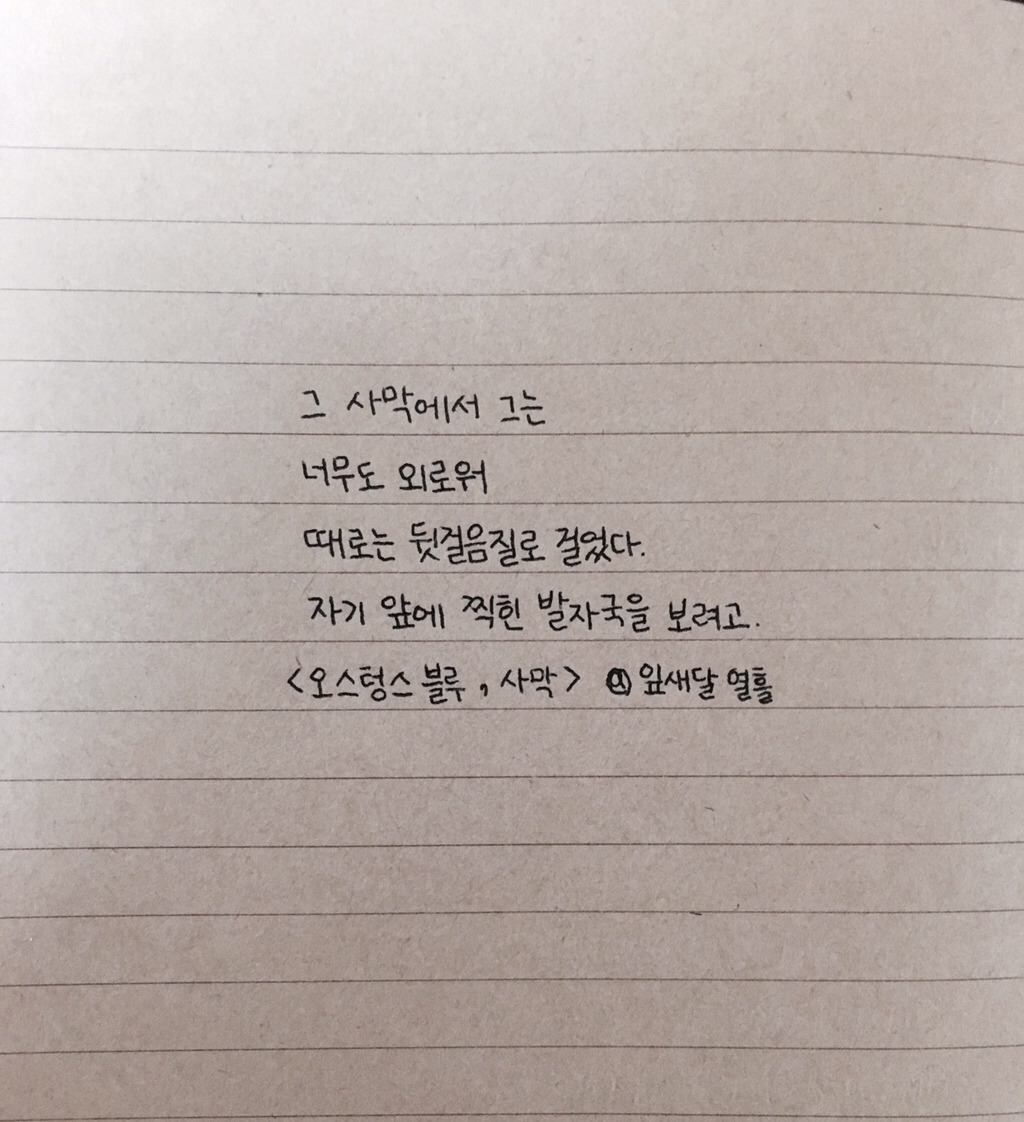 그 사막에서 그는
너무도 외로워
때로는 뒷걸음질로 걸었다.
자기 앞에 찍힌 발자국을 보려고.
<오스텅스 블루, 사막> 잎새달 열흘